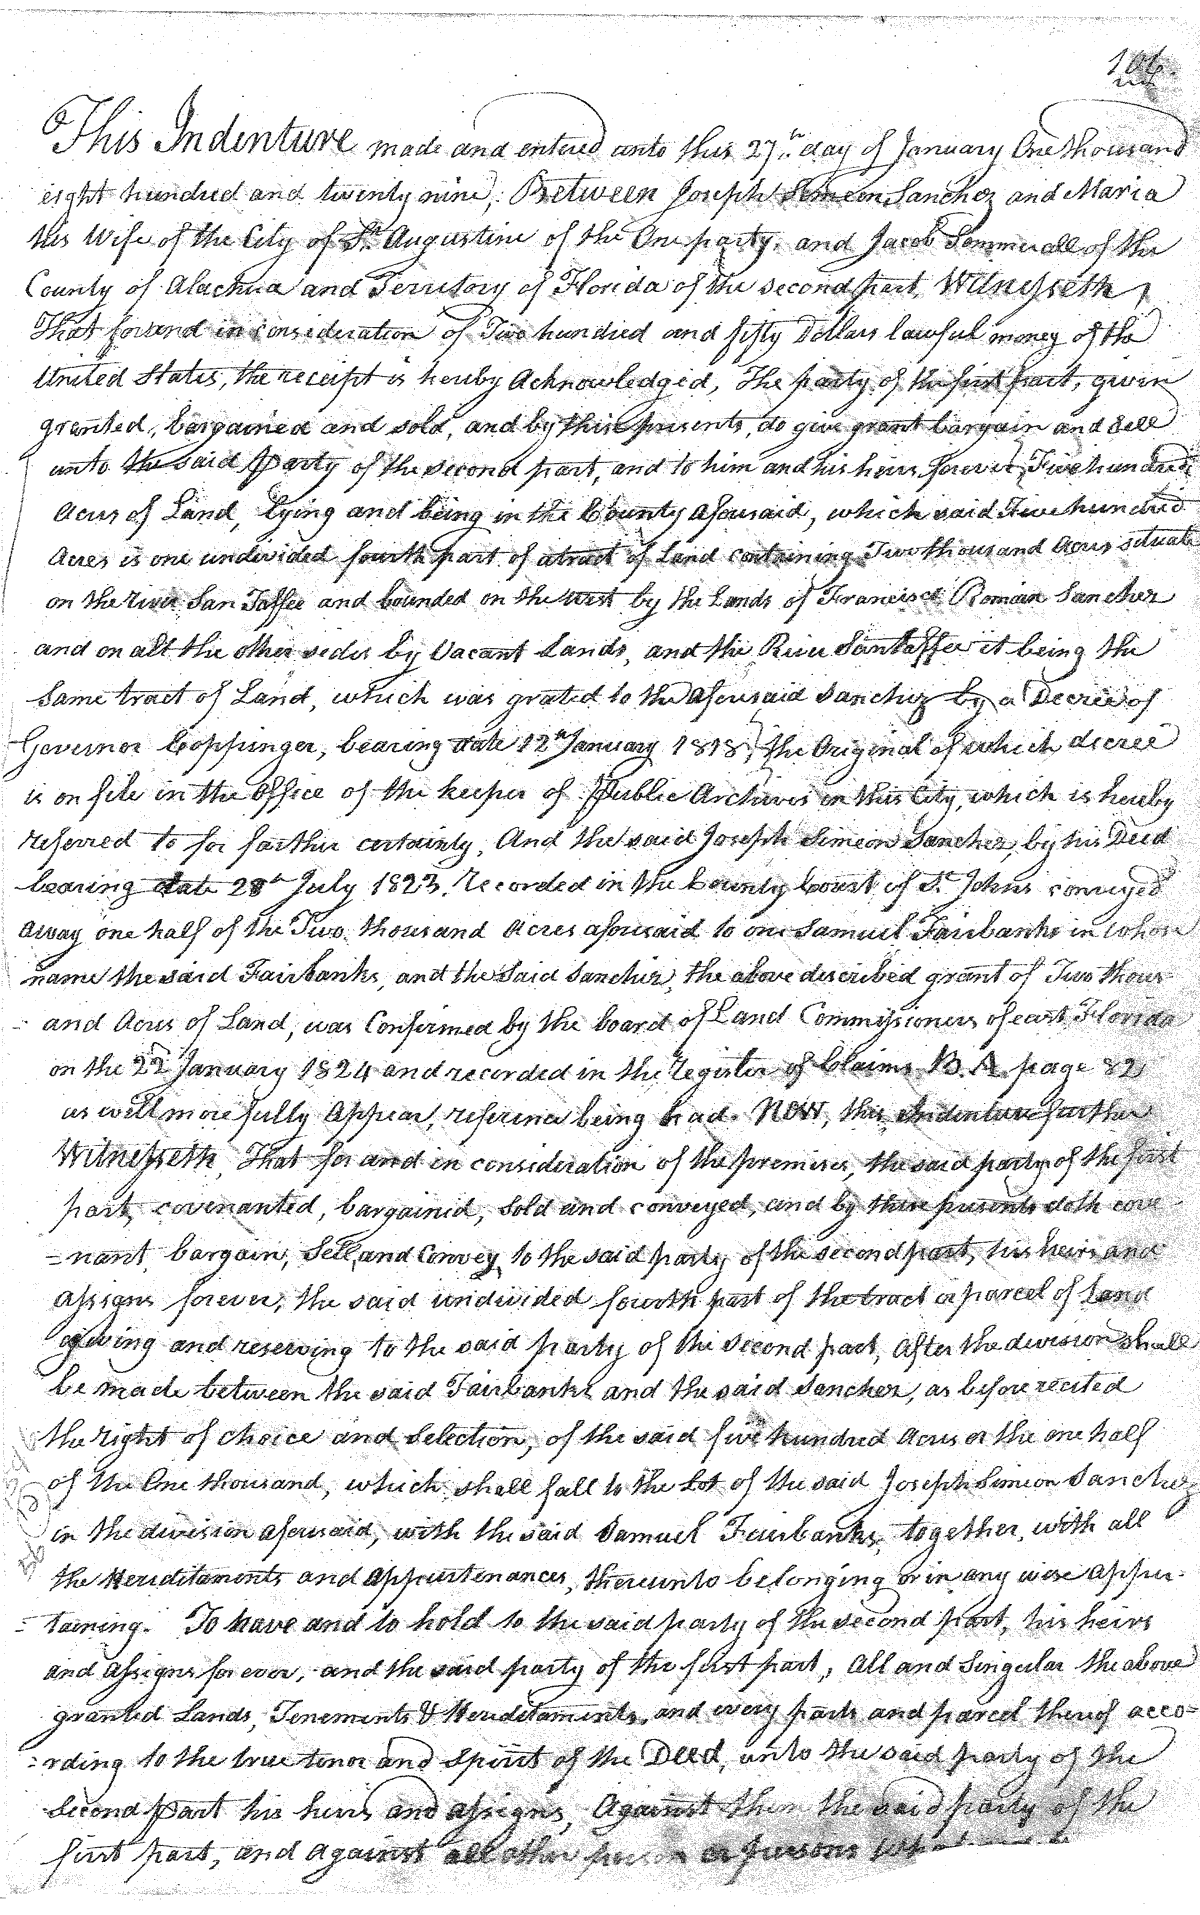 106.
This Indenture made and entered unto this 27th day of January One thousand
eight hundred and twenty nine, Between Joseph Simeon Sanchez and Maria
his Wife of the City of St. Augustine of the One party, and Jacob Sommerall of the
County of Alachua and Territory of Florida of the second part, Witnesseth,
That for and in consideration of Two hundred and fifty Dollars lawful money of the
United States, the receipt is hereby Acknowledged, The party of the first part, given
granted, bargained and sold, and by these presents, do give grant bargain and Sell
unto the said Party of the second part, and to him and his heirs forever, Five hundred
Acres of Land, lying and being in the County Aforesaid, which said Five hundred
Acres is one undivided fourth part of a tract of Land containing Two thousand Acres situate
on the river San Taffee and bounded on the west by the Lands of Francisco Romain Sanchez
and on all the other sides by Vacant Lands, and the River Santaffee it being the
Same tract of Land, which was grated to the aforesaid Sanchez by a Decree of
Governor Coppinger, bearing date 12th January 1818, the Original of which decree
is on file in the Office of the keeper of Public Archives in this City, which is hereby
referred to for farther certainty, And the said Joseph Simeon Sanchez, by his Deed
bearing date 28th July 1823. Recorded in the County Court of St. Johns conveyed
Away one half of the Two thousand Acres aforesaid to one Samuel Fairbanks in whose
name the said Fairbanks, and the Said Sanchez, the above described grant of Two thous
and Acres of Land, was Confirmed by the board of Land Commissioners of east Florida
on the 22d January 1824 and recorded in the Register of Claims B. A. page 82
as well more fully Appear, reference being had. Now, this Indenture further
Witnesseth, That for and in consideration of the premises, the said party of the first
part, covenanted, bargained, Sold and conveyed, and by these presents doth cove
=nant, bargain, Sell, and Convey, to the said party of the second part, his heirs and
Assigns forever, the said undivided fourth part of the tract or parcel of Land
giving and reserving to the said party of the second part, After the division shall
be made between the said Fairbanks and the said Sanchez, as before recited
the right of choice and Selection, of the said five hundred Acres or the one half
of the One thousand, which shall fall to the Lot of the said Joseph Simeon Sanchez
in the division aforesaid, with the said Samuel Fairbanks, together, with all
the Hereditaments and Appurtenances, thereunto belonging or in any wise Apper-
=taining. To have and to hold to the said party of the second part, his heirs
and Assigns for ever, and the said party of the first part, All and Singular the above
granted Lands, Tenements & Hereditaments, and every parts and parcel thereof acco=
=rding to the true tenor and Spirit of the Deed, unto the said party of the
Second Part his heirs and assigns, Against them the said party of the
first part, and against all other person or persons